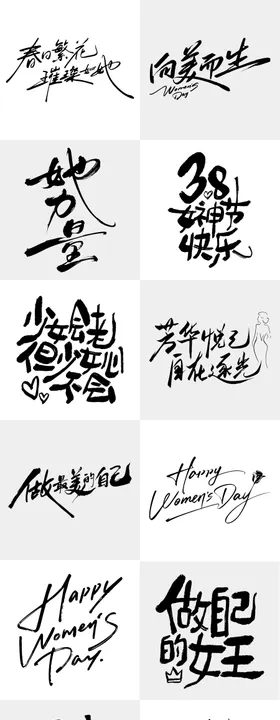 春日繁花
璀璨如她
向美而生
Women's
Day
她
力
量
3.8
女神节
快乐
少女会老
但少女心
不会
芳华悦己
自在逐光
做最美的自己
Happy
Women's Day
Happy
Women's
Day.
做自己
的女王